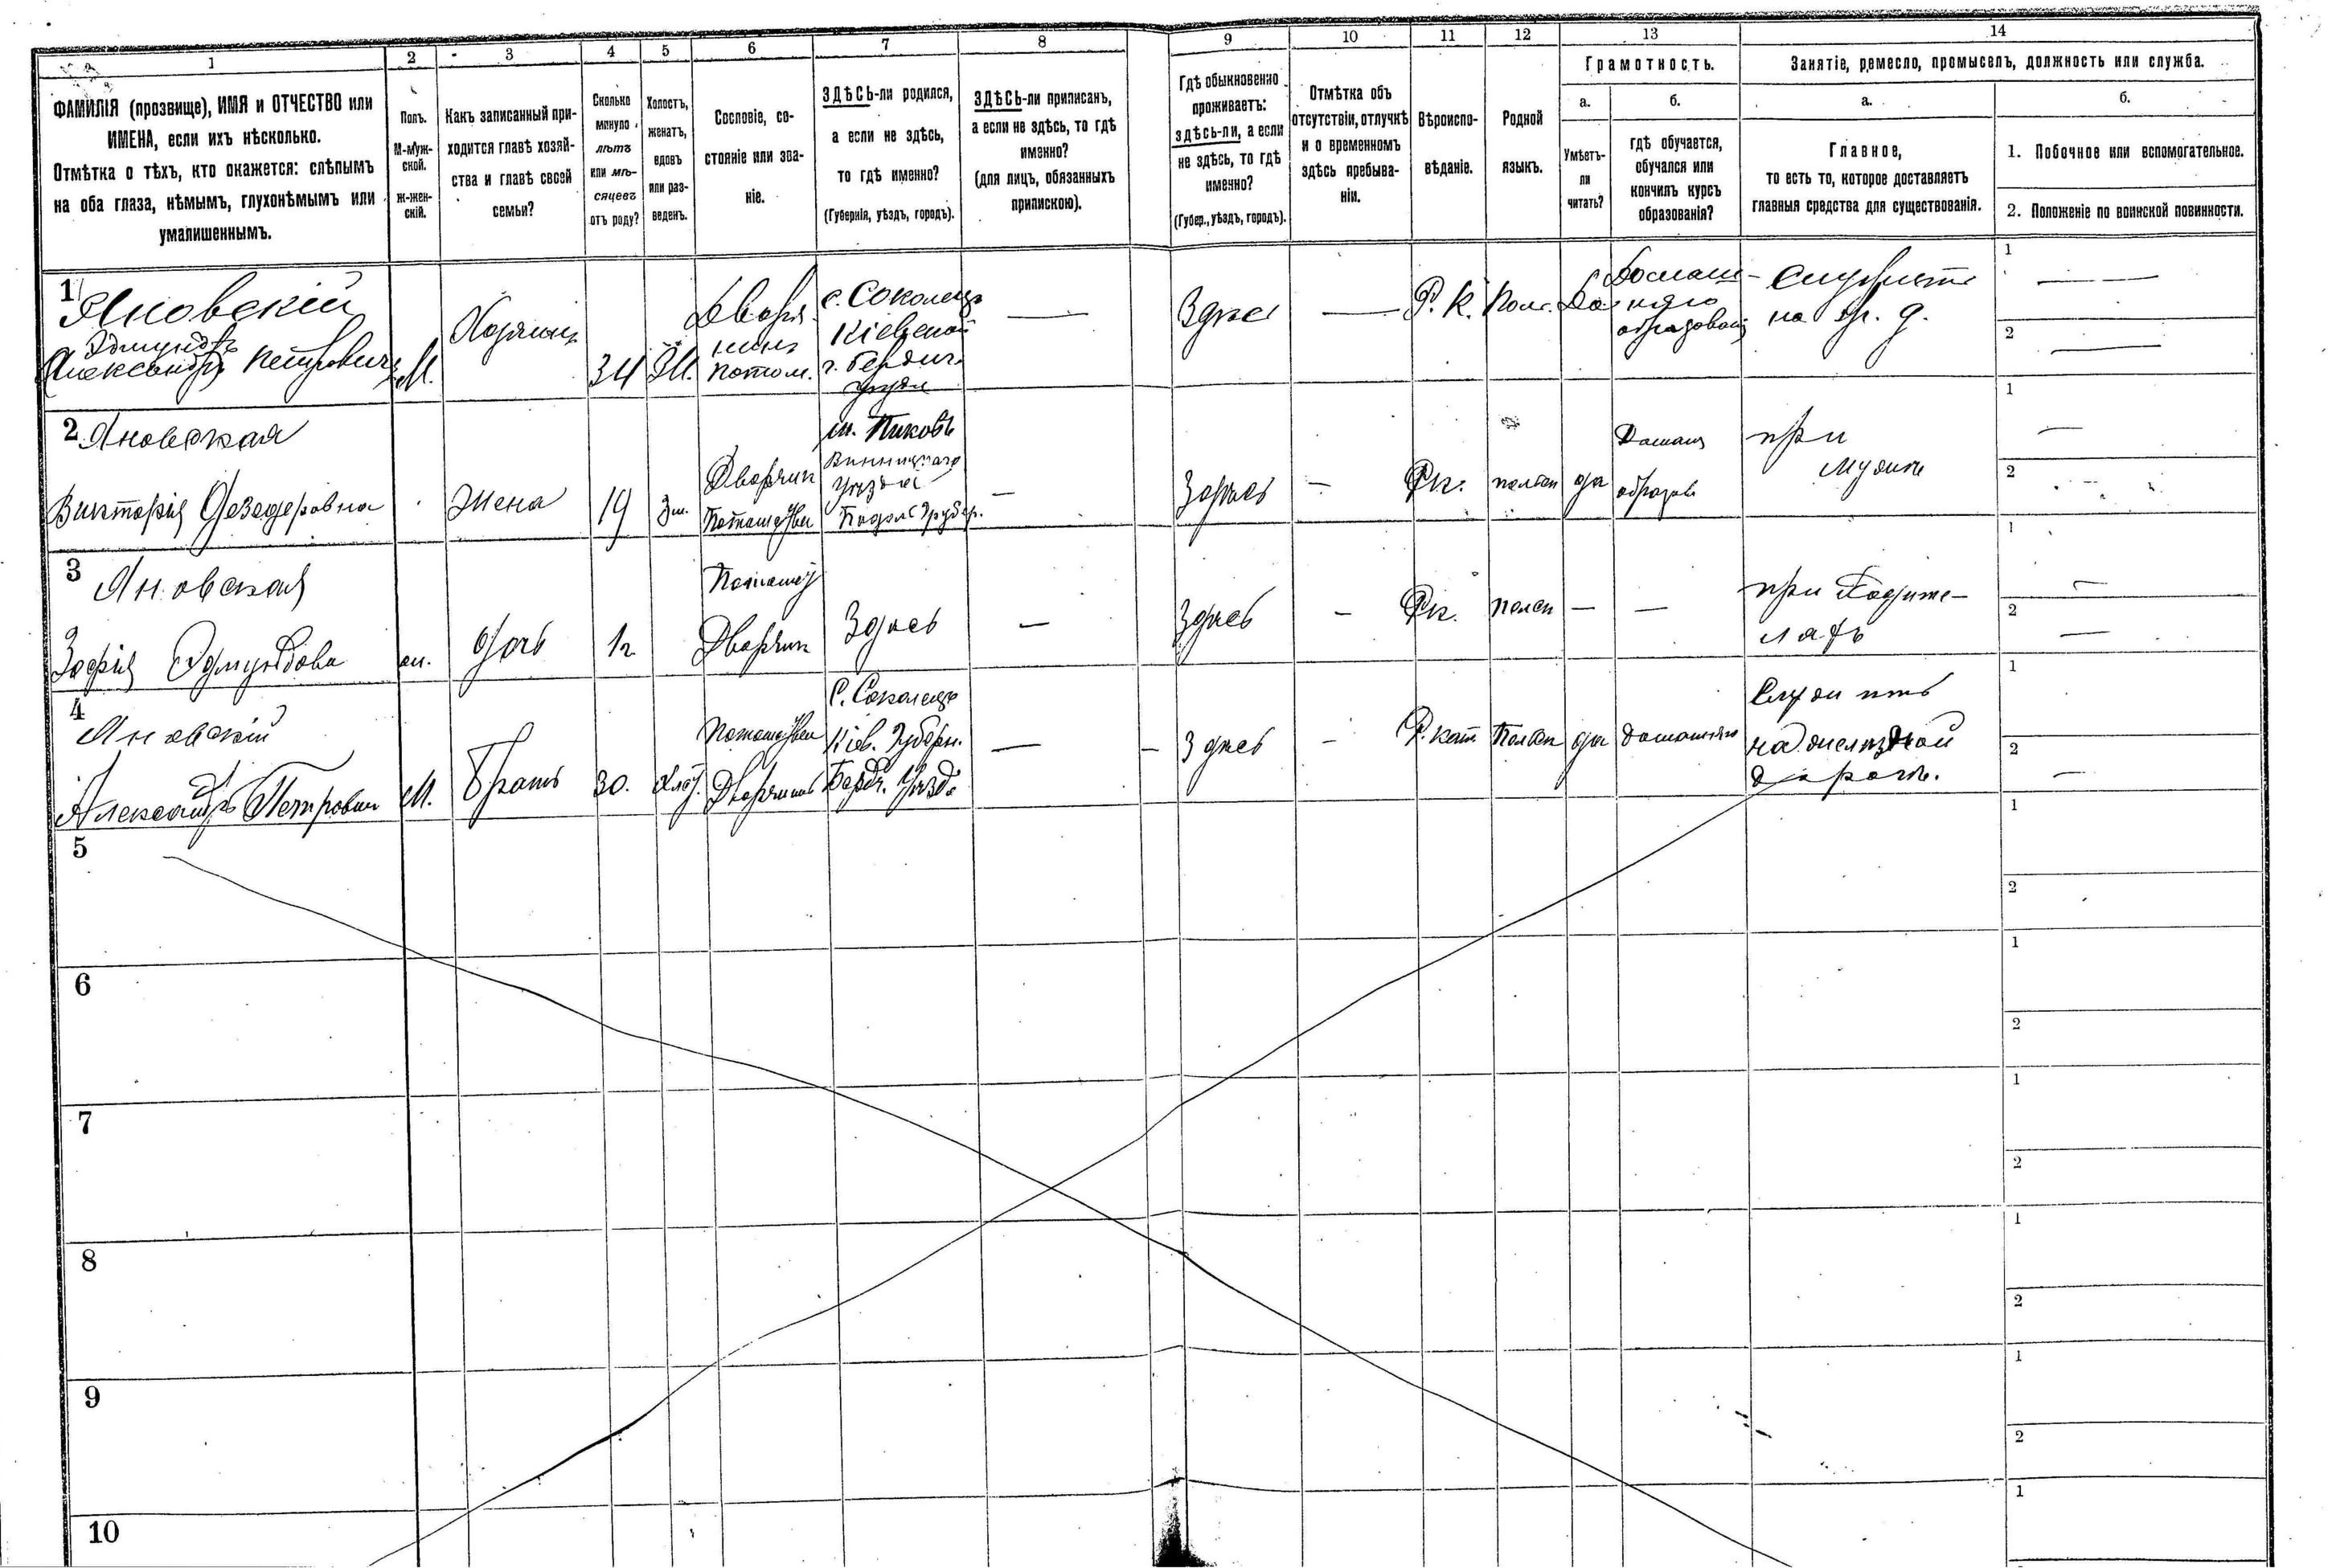 1
2
3
4
5
6
7
8
9
10
11
12
13
14
ФАМИЛІЯ (прозвище), ИМЯ и ОТЧЕСТВО или
ИМЕНА, если ихъ нѣсколько.
Отмѣтка о тѣхъ, кто окажется: слѣпымъ
на оба глаза, нѣмымъ, глухонѣмымъ или
умалишеннымъ.
Полъ.
М-муж-
ской.
ж-жен-
скій.
Какъ записанный при-
ходится главѣ хозяй-
ства и главѣ своей
семьи?
Сколько
минуло
лѣтъ
или мѣ-
сяцевъ
отъ роду?
Холостъ,
женатъ,
вдовъ
или раз-
веденъ.
Сословіе, со-
стояніе или зва-
ніе.
ЗДѢСЬ-ли родился,
а если не здѣсь,
то гдѣ именно?
(Губернія, уѣздъ, городъ).
ЗДѢСЬ-ли приписанъ,
а если не здѣсь, то гдѣ
именно?
(для лицъ, обязанныхъ
припискою).
Гдѣ обыкновенно
проживаетъ:
здѣсь-ли, а если
не здѣсь, то гдѣ
именно?
(Губер., уѣздъ, городъ).
Отмѣтка объ
отсутствіи, отлучкѣ
и о временномъ
здѣсь пребыва-
ніи.
Вѣроиспо-
вѣданіе.
Родной
языкъ.
Грамотность.
а.
б.
Умѣетъ-
ли
читать?
гдѣ обучается,
обучался или
кончилъ курсъ
образованія?
Занятіе, ремесло, промыселъ, должность или служба.
а.
б.
Главное,
то есть то, которое доставляетъ
главныя средства для существованія.
1. Побочное или вспомогательное.
2. Положеніе по воинской повинности.
1
Яновскій
Эдмундъ
Александръ Петровичъ
М.
Хозяинъ
34
Ж.
Дворя-
нинъ
потом.
с. Соколецъ
Кіевской
г. Бердич.
уѣзда
—
Здѣс
—
Р. К.
Пол.
Да
Домаш-
няго
образован
Служитъ
на ж. д.
1
—
2
—
2
Яновская
Викторія Дезидеровна
Жена
19
Зм.
Дворян
Потомствен
м. Пиковъ
Винницкаго
уѣзда
Подольс губер.
—
Здѣсь
—
Рк.
польск
да
Домашн
образов
при
мужѣ
1
—
2
3
Яновская
Зофія Эдмундова
ж.
дочь
1г
Потомст
Дворян
Здѣсь
—
Здѣсь
—
Рк.
польск
—
—
при Родите-
ляхъ
1
—
2
—
4
Яновскій
Александръ Петрович
М.
Братъ
30.
Хлос.
Потомствен
Дворянинъ
С. Соколецъ
Кіев. Губерн.
Берд. Уѣзд.
—
Здѣсь
—
Р. кат
Польск
да
домашняго
Служитъ
на желѣзной
дорогѣ.
1
2
—
5
1
2
6
1
2
7
1
2
8
1
2
9
1
2
10
1